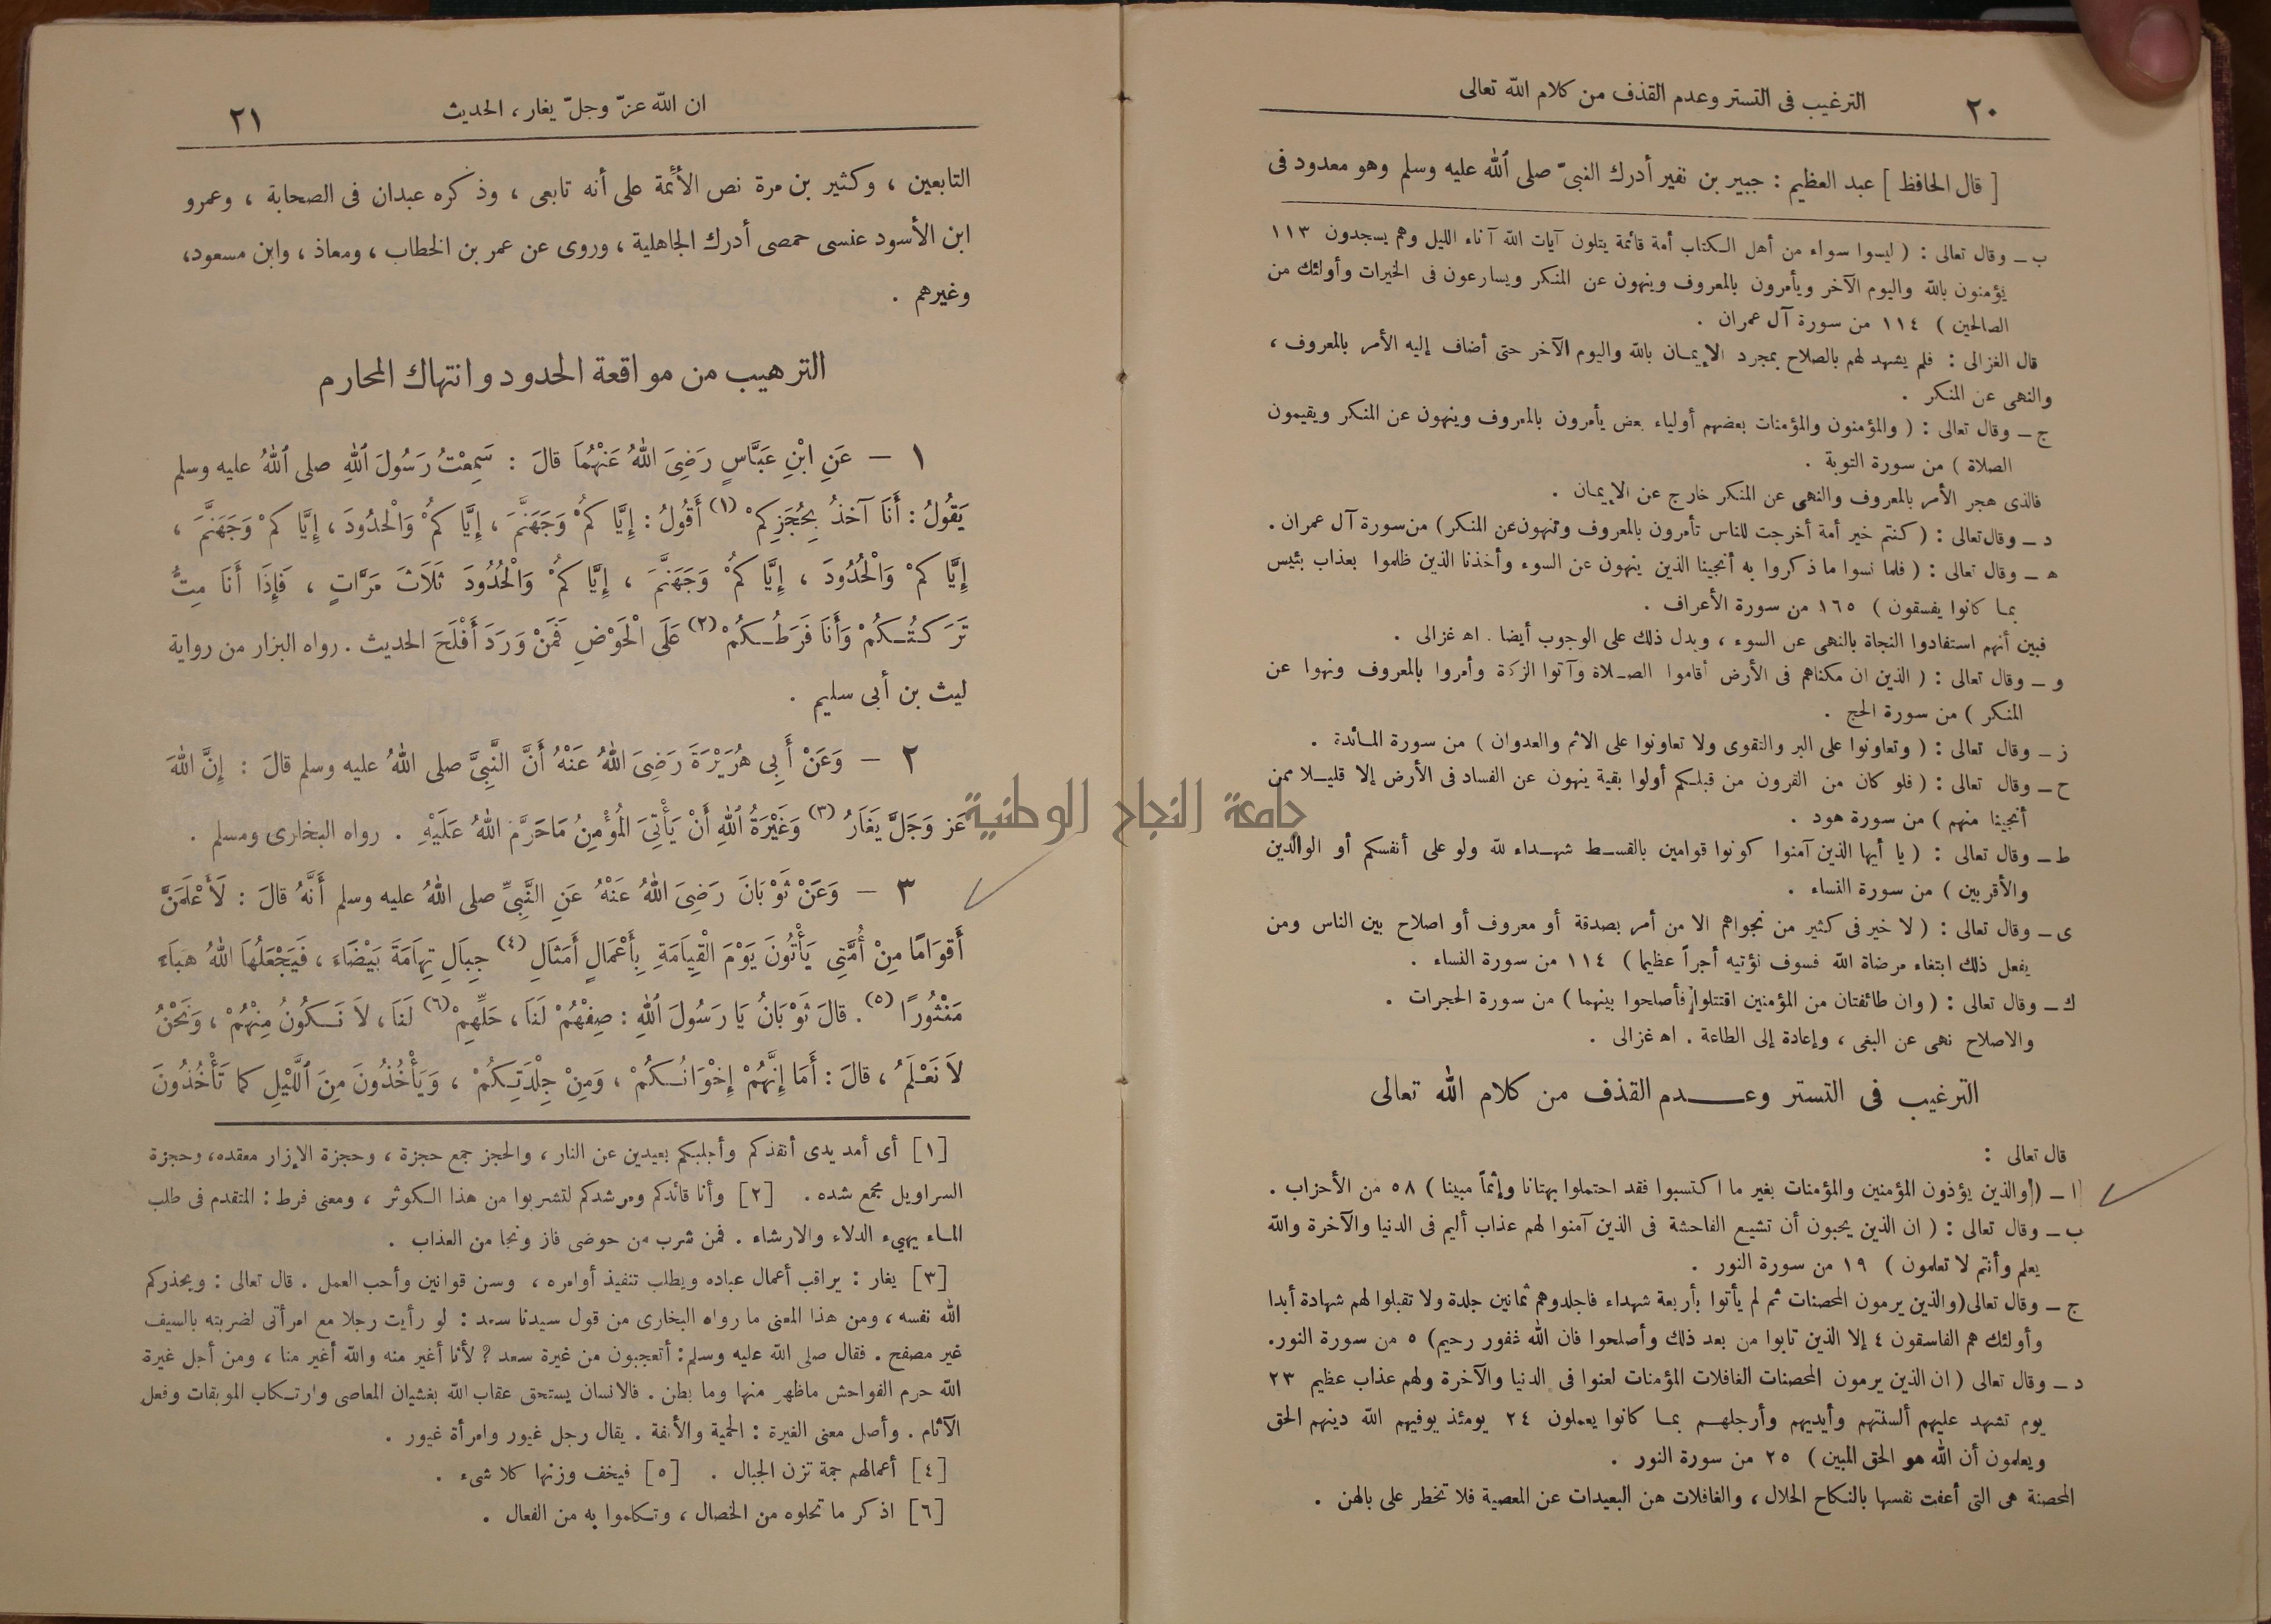 ٢٠ الترغيب فى التستر وعدم القذف من كلام الله تعالى
[ قال الحافظ ] عبد العظيم : جبير بن نفير أدرك النبىّ صلى الله عليه وسلم وهو معدود فى
ب ــ وقال تعالى : ( ليسوا سواء من أهل الكتاب أمة قائمة يتلون آيات الله آناء الليل وهم يسجدون ١١٣
يؤمنون بالله واليوم الآخر ويأمرون بالمعروف وينهون عن المنكر ويسارعون فى الخيرات وأولئك من
الصالحين ) ١١٤ من سورة آل عمران .
قال الغزالى : فلم يشهد لهم بالصلاح بمجرد الإيمان بالله واليوم الآخر حتى أضاف إليه الأمر بالمعروف ،
والنهى عن المنكر .
ج ــ وقال تعالى : ( والمؤمنون والمؤمنات بعضهم أولياء بعض يأمرون بالمعروف وينهون عن المنكر ويقيمون
الصلاة ) من سورة التوبة .
فالذى هجر الأمر بالمعروف والنهى عن المنكر خارج عن الإيمان .
د ــ وقال تعالى : ( كنتم خير أمة أخرجت للناس تأمرون بالمعروف وتنهون عن المنكر ) من سورة آل عمران .
ه ــ وقال تعالى : ( فلما نسوا ما ذكروا به أنجينا الذين ينهون عن السوء وأخذنا الذين ظلموا بعذاب بئيس
بما كانوا يفسقون ) ١٦٥ من سورة الأعراف .
فبين أنهم استفادوا النجاة بالنهى عن السوء ، وبدل ذلك على الوجوب أيضا . اه غزالى .
و ــ وقال تعالى : ( الذين ان مكناهم فى الأرض أقاموا الصلاة وآتوا الزكاة وأمروا بالمعروف ونهوا عن
المنكر ) من سورة الحج .
ز ــ وقال تعالى : ( وتعاونوا على البر والتقوى ولا تعاونوا على الاثم والعدوان ) من سورة المائدة .
ح ــ وقال تعالى : ( فلو كان من القرون من قبلكم أولوا بقية ينهون عن الفساد فى الأرض إلا قليلا ممن
أنجينا منهم ) من سورة هود .
ط ــ وقال تعالى : ( يا أيها الذين آمنوا كونوا قوامين بالقسط شهداء لله ولو على أنفسكم أو الوالدين
والأقربين ) من سورة النساء .
ى ــ وقال تعالى : ( لا خير فى كثير من نجواهم الا من أمر بصدقة أو معروف أو اصلاح بين الناس ومن
يفعل ذلك ابتغاء مرضاة الله فسوف نؤتيه أجراً عظيما ) ١١٤ من سورة النساء .
ك ــ وقال تعالى : ( وان طائفتان من المؤمنين اقتتلوا فأصلحوا بينهما ) من سورة الحجرات .
والاصلاح نهى عن البغى ، وإعادة إلى الطاعة . اه غزالى .
الترغيب فى التستر وعدم القذف من كلام الله تعالى
قال تعالى :
ا ــ ( والذين يؤذون المؤمنين والمؤمنات بغير ما اكتسبوا فقد احتملوا بهتانا وإثماً مبينا ) ٥٨ من الأحزاب .
ب ــ وقال تعالى : ( ان الذين يحبون أن تشيع الفاحشة فى الذين آمنوا لهم عذاب أليم فى الدنيا والآخرة والله
يعلم وأنتم لا تعلمون ) ١٩ من سورة النور .
ج ــ وقال تعالى ( والذين يرمون المحصنات ثم لم يأتوا بأربعة شهداء فاجلدوهم ثمانين جلدة ولا تقبلوا لهم شهادة أبدا
وأولئك هم الفاسقون ٤ إلا الذين تابوا من بعد ذلك وأصلحوا فان الله غفور رحيم ) ٥ من سورة النور.
د ــ وقال تعالى ( ان الذين يرمون المحصنات الغافلات المؤمنات لعنوا فى الدنيا والآخرة ولهم عذاب عظيم ٢٣
يوم تشهد عليهم ألسنتهم وأيديهم وأرجلهم بما كانوا يعملون ٢٤ يومئذ يوفيهم الله دينهم الحق
ويعلمون أن الله هو الحق المبين ) ٢٥ من سورة النور .
المحصنة هى التى أعفت نفسها بالنكاح الحلال ، والغافلات هن البعيدات عن المعصية فلا تخطر على بالهن .
ان الله عزّ وجلّ يغار ، الحديث ٢١
التابعين ، وكثير بن مرة نص الأئمة على أنه تابعى ، وذكره عبدان فى الصحابة ، وعمرو
ابن الأسود عنسى حمصى أدرك الجاهلية ، وروى عن عمر بن الخطاب ، ومعاذ ، وابن مسعود،
وغيرهم .
الترهيب من مواقعة الحدود وانتهاك المحارم
١ – عَنِ ابْنِ عَبَّاسٍ رَضِىَ اللهُ عَنْهُمَا قالَ : سَمِعْتُ رَسُولَ اللهِ صلى اللهُ عليه وسلم
يَقُولُ : أَنَا آخذُ بِحُجَزِكمْ (١) أَقُولُ : إِيَّا كمْ وَجَهَنَّمَ ، إِيَّا كمْ وَالْحدُودَ ، إِيَّا كمْ وَجَهَنَّمَ ،
إِيَّا كمْ وَالْحُدُودَ ، إِيَّا كمْ وَجَهَنَّمَ ، إِيَّا كمْ وَالْحُدُودَ ثَلاَثَ مَرَّاتٍ ، فَإِذَا أَنَا مِتُّ
تَرَكْتُكُمْ وَأَنَا فَرَطُكُمْ (٢) عَلَى الْحَوْضِ فَمَنْ وَرَدَ أَفْلَحَ الحديث . رواه البزار من رواية
ليث بن أبى سليم .
٢ – وَعَنْ أَبِى هُرَيْرَةَ رَضِىَ اللهُ عَنْهُ أَنَّ النَّبِىَّ صلى اللهُ عليه وسلم قالَ : إِنَّ اللهَ
عَز وَجَلَّ يَغَارُ (٣) وَغَيْرَةُ اللهِ أَنْ يَأْتِىَ الْمُؤْمِنُ مَاحَرَّمَ اللهُ عَلَيْهِ . رواه البخارى ومسلم .
٣ – وَعَنْ ثَوْبَانَ رَضِىَ اللهُ عَنْهُ عَنِ النَّبِىِّ صلى اللهُ عليه وسلم أَنَّهُ قالَ : لَأَعْلَمَنَّ
أَقوَامًا مِنْ أُمَّتِى يَأْتُونَ يَوْمَ الْقِيَامَةِ بِأَعْمَالٍ أَمَثَالِ (٤) جِبَالِ تِهَامَةَ بَيْضَاءَ ، فَيَجْعَلُهَا اللهُ هبَاءَ
مَنْثُورًا (٥) . قالَ ثَوْبَانُ يَا رَسُولَ اللهِ : صِفْهُمْ لَنَا ، حَلِّهِمْ (٦) لَنَا ، لاَ نَكُونُ مِنْهُمْ ، وَنَحْنُ
لاَ نَعْلَمُ ، قالَ : أَمَا إِنَّهُمْ إِخْوَانُكُمْ ، وَمِنْ جِلْدَتِكُمْ ، وَيَأْخُذُونَ مِنَ اللَّيْلِ كما تَأْخُذُونَ
[١] أى أمد يدى أنقذكم وأجلبكم بعيدين عن النار ، والحجز جمع حجزة ، وحجزة الإزار معقده، وحجزة
السراويل مجمع شده . [٢] وأنا قائدكم ومرشدكم لتشربوا من هذا الكوثر ، ومعنى فرط : المتقدم فى طلب
الماء يهيء الدلاء والارشاء . فمن شرب من حوضى فاز ونجا من العذاب .
[٣] يغار : يراقب أعمال عباده ويطلب تنفيذ أوامره ، وسن قوانين وأحب العمل . قال تعالى : ويحذركم
الله نفسه ، ومن هذا المعنى ما رواه البخارى من قول سيدنا سعد : لو رأيت رجلا مع امرأتى لضربته بالسيف
غير مصفح . فقال صلى الله عليه وسلم : أتعجبون من غيرة سعد ؟ لأنا أغير منه والله أغير منا ، ومن أجل غيرة
الله حرم الفواحش ماظهر منها وما بطن . فالانسان يستحق عقاب الله بغشيان المعاصى وارتكاب الموبقات وفعل
الآثام . وأصل معنى الغيرة : الحمية والأنفة . يقال رجل غيور وامرأة غيور .
[٤] أعمالهم جمة تزن الجبال . [٥] فيخف وزنها كلا شىء .
[٦] اذكر ما تحلوه من الخصال ، وتكلموا به من الفعال .
جامعة النجاح الوطنية